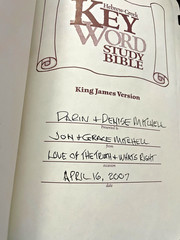 Hebrew-Greek
KEY
WORD
STUDY
BIBLE
King James Version
DARIN + DENISE MITCHELL
Presented to
JON + GRACE MITCHELL
From
LOVE OF THE TRUTH + WHAT'S RIGHT
Occasion
APRIL 16, 2007
Date